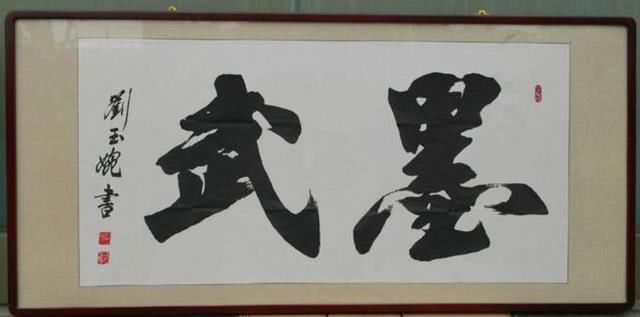 墨武
劉玉婉書